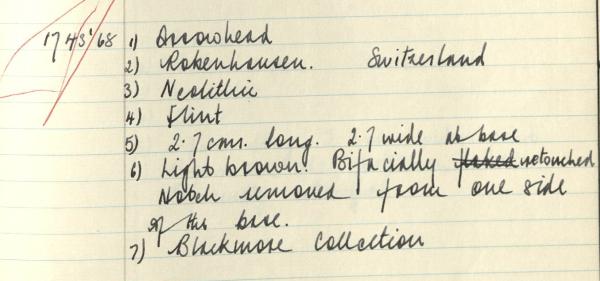 1743'/68 1) Arrowhead
2) Robenhausen. Switzerland
3) Neolithic
4) Flint
5) 2.7 cms. long. 2.7 wide at base
6) Light brown. Bifacially flaked retouched
Notch removed from one side
of the base.
7) Blackmore Collection